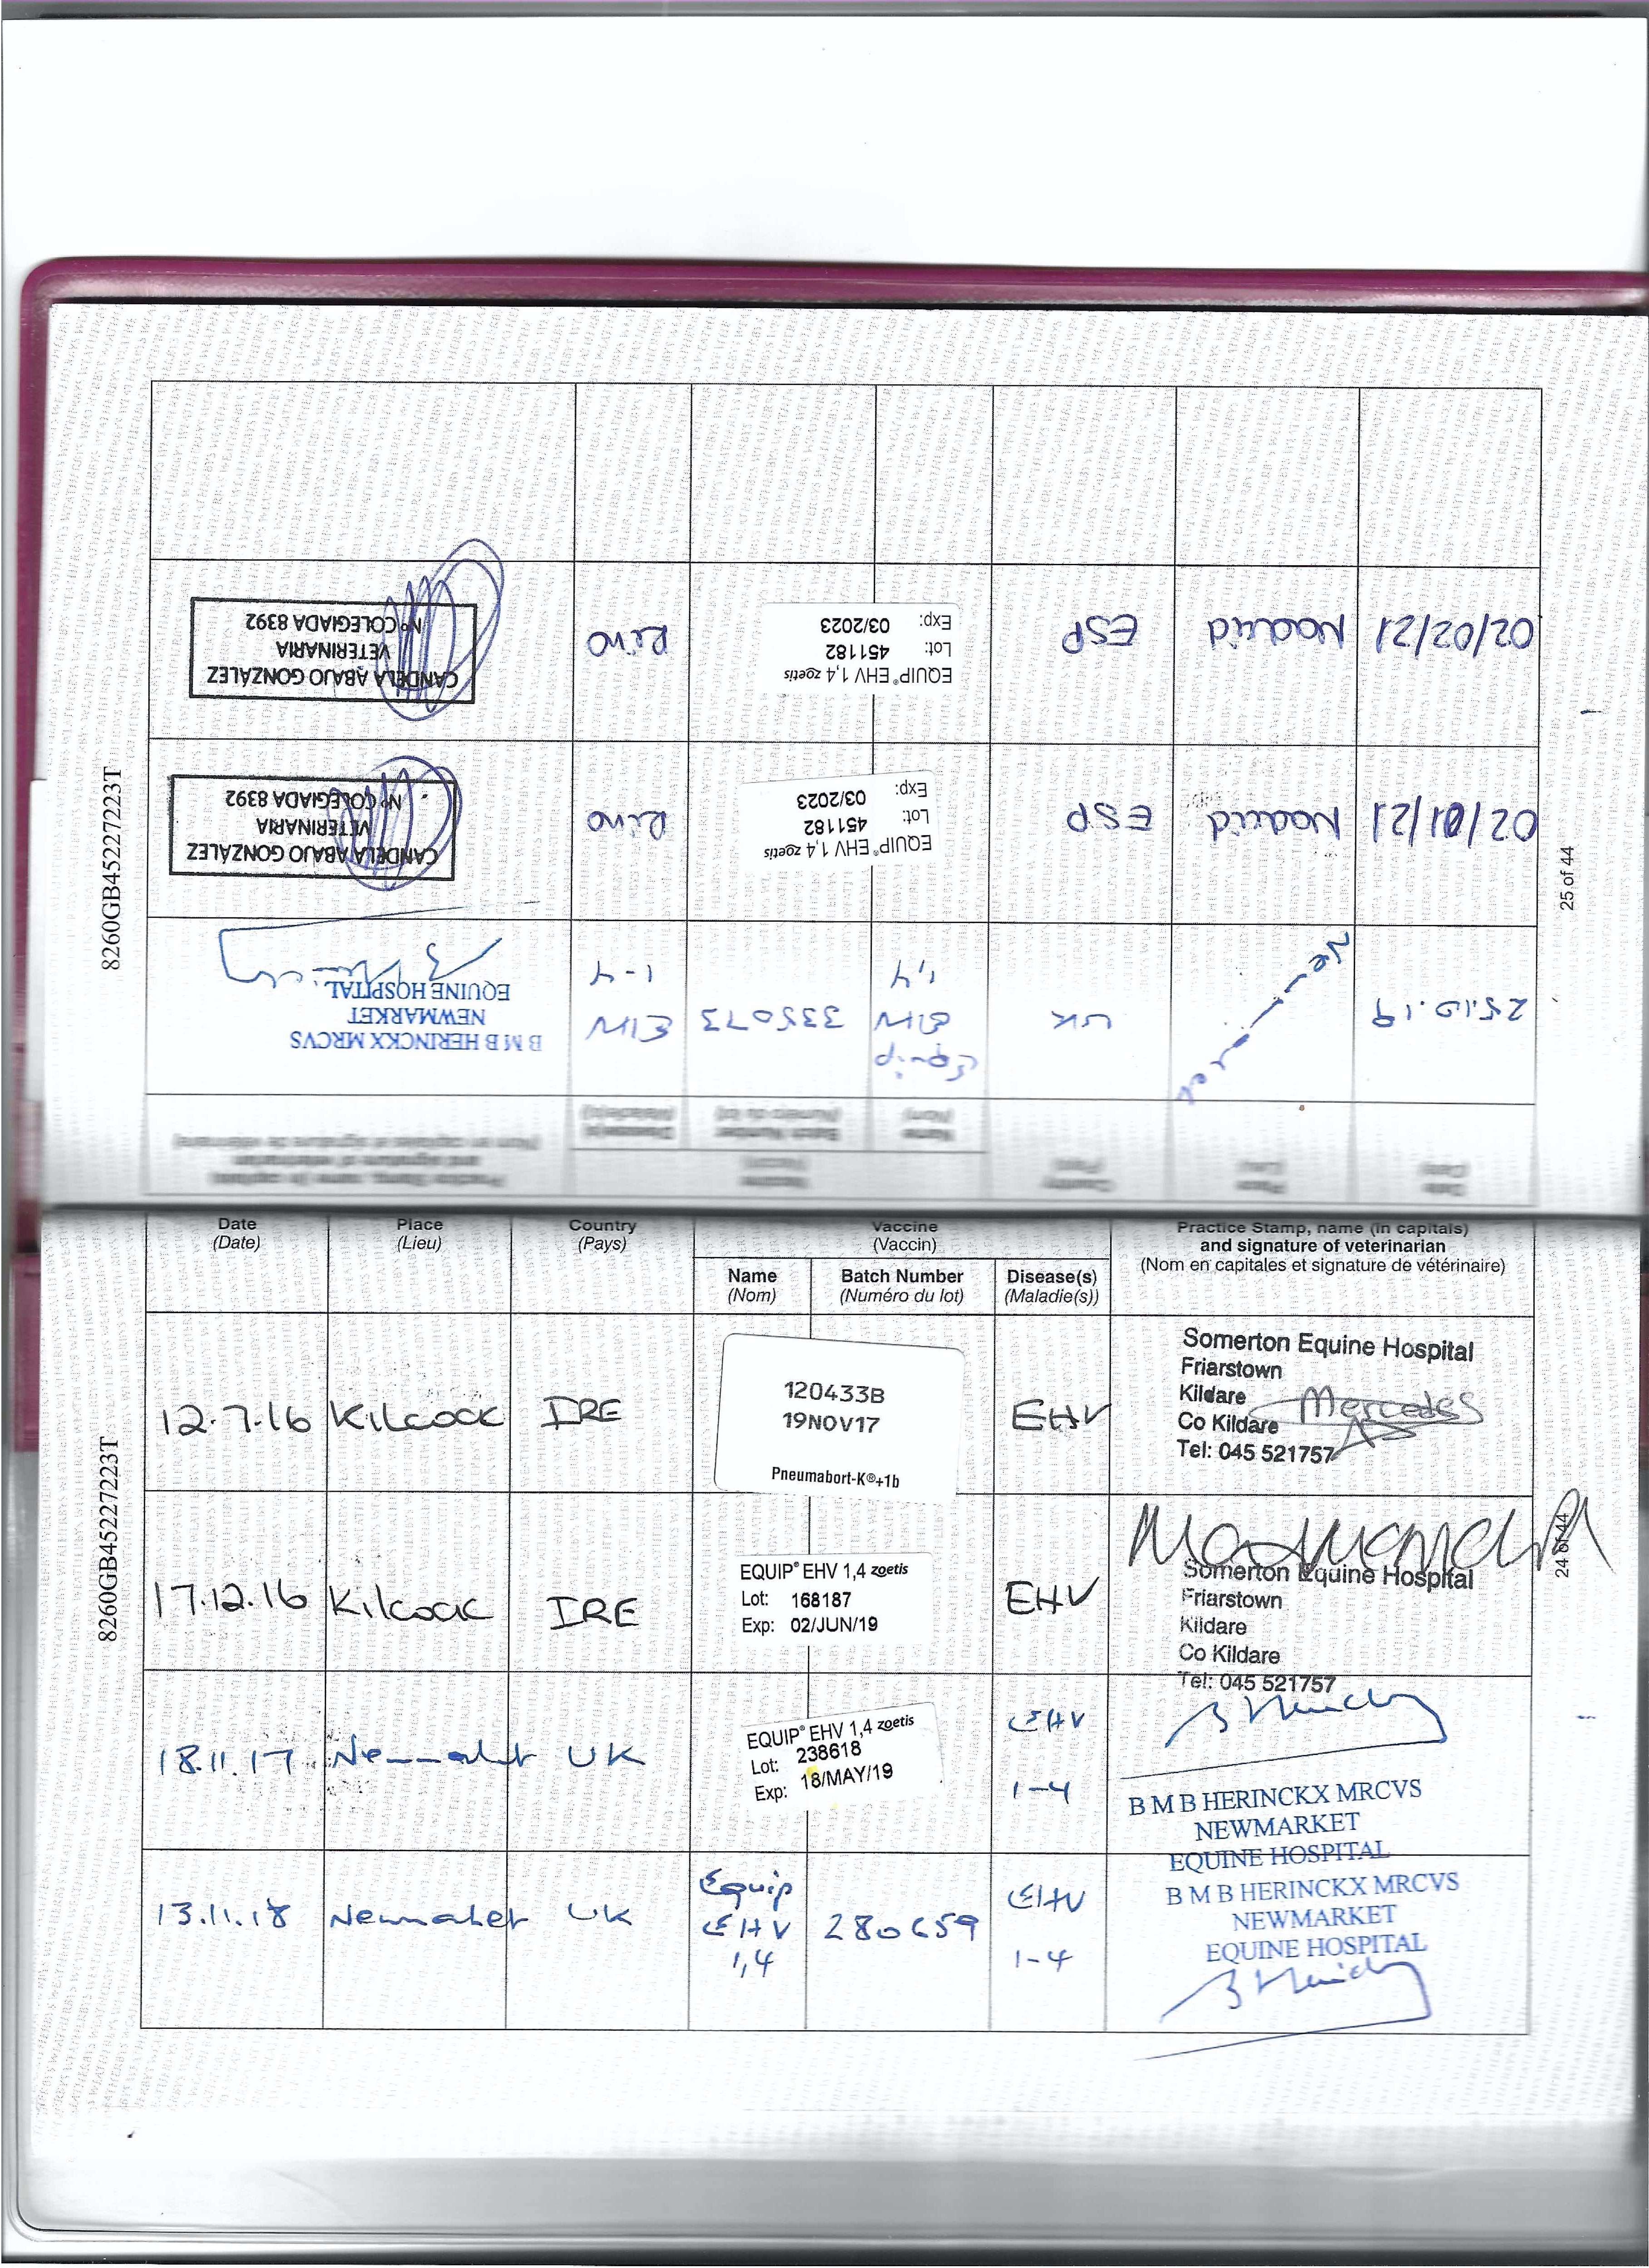 8260GB452272223T
25 of 44
Date
(Date)
Place
(Lieu)
Country
(Pays)
Vaccine
(Vaccin)
Name
(Nom)
Batch Number
(Numéro du lot)
Disease(s)
(Maladie(s))
Practice Stamp, name (in capitals)
and signature of veterinarian
(Nom en capitales et signature de vétérinaire)
25.10.19
UK
Equip
EHV
1,4
335073
EHV
1-4
B M B HERINCKX MRCVS
NEWMARKET
EQUINE HOSPITAL
02/01/21
Madrid
ESP
EQUIP® EHV 1,4 zoetis
Lot: 451182
Exp: 03/2023
Rino
CANDELA ABAJO GONZÁLEZ
VETERINARIA
Nº COLEGIADA 8392
02/02/21
Madrid
ESP
EQUIP® EHV 1,4 zoetis
Lot: 451182
Exp: 03/2023
Rino
CANDELA ABAJO GONZÁLEZ
VETERINARIA
Nº COLEGIADA 8392
8260GB452272223T
24 of 44
Date
(Date)
Place
(Lieu)
Country
(Pays)
Vaccine
(Vaccin)
Name
(Nom)
Batch Number
(Numéro du lot)
Disease(s)
(Maladie(s))
Practice Stamp, name (in capitals)
and signature of veterinarian
(Nom en capitales et signature de vétérinaire)
12.7.16
Kilcock
IRE
120433B
19NOV17
Pneumabort-K®+1b
EHV
Somerton Equine Hospital
Friarstown
Kildare
Co Kildare
Tel: 045 521757
Mercedes
17.12.16
Kilcock
IRE
EQUIP® EHV 1,4 zoetis
Lot: 168187
Exp: 02/JUN/19
EHV
Somerton Equine Hospital
Friarstown
Kildare
Co Kildare
Tel: 045 521757
18.11.17
Newmarket
UK
EQUIP® EHV 1,4 zoetis
Lot: 238618
Exp: 18/MAY/19
EHV
1-4
B M B HERINCKX MRCVS
NEWMARKET
EQUINE HOSPITAL
13.11.18
Newmarket
UK
Equip
EHV
1,4
280659
EHV
1-4
B M B HERINCKX MRCVS
NEWMARKET
EQUINE HOSPITAL